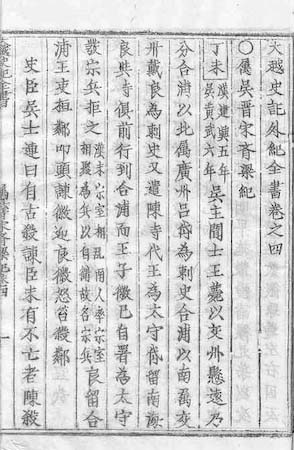 大越史記外紀全書卷之四
○屬吳晉宋齊梁紀
丁未 漢建興五年 吳黃武六年 吳主聞士王薨以交州懸遠乃
分合浦以北屬廣州呂岱為刺史合浦以南屬交
州戴良為刺史又遣陳寺代王為太守岱留南海
良與寺俱前行到合浦而王子徽已自署為太守
發宗兵拒之 漢末宗室相乱人率宗室 相聚為兵以自衛故名宗兵 良留合
浦王吏桓鄰叩頭諫徽迎良徽怒笞殺鄰
史臣吳士連曰自古殺諫臣未有不亡者陳殺